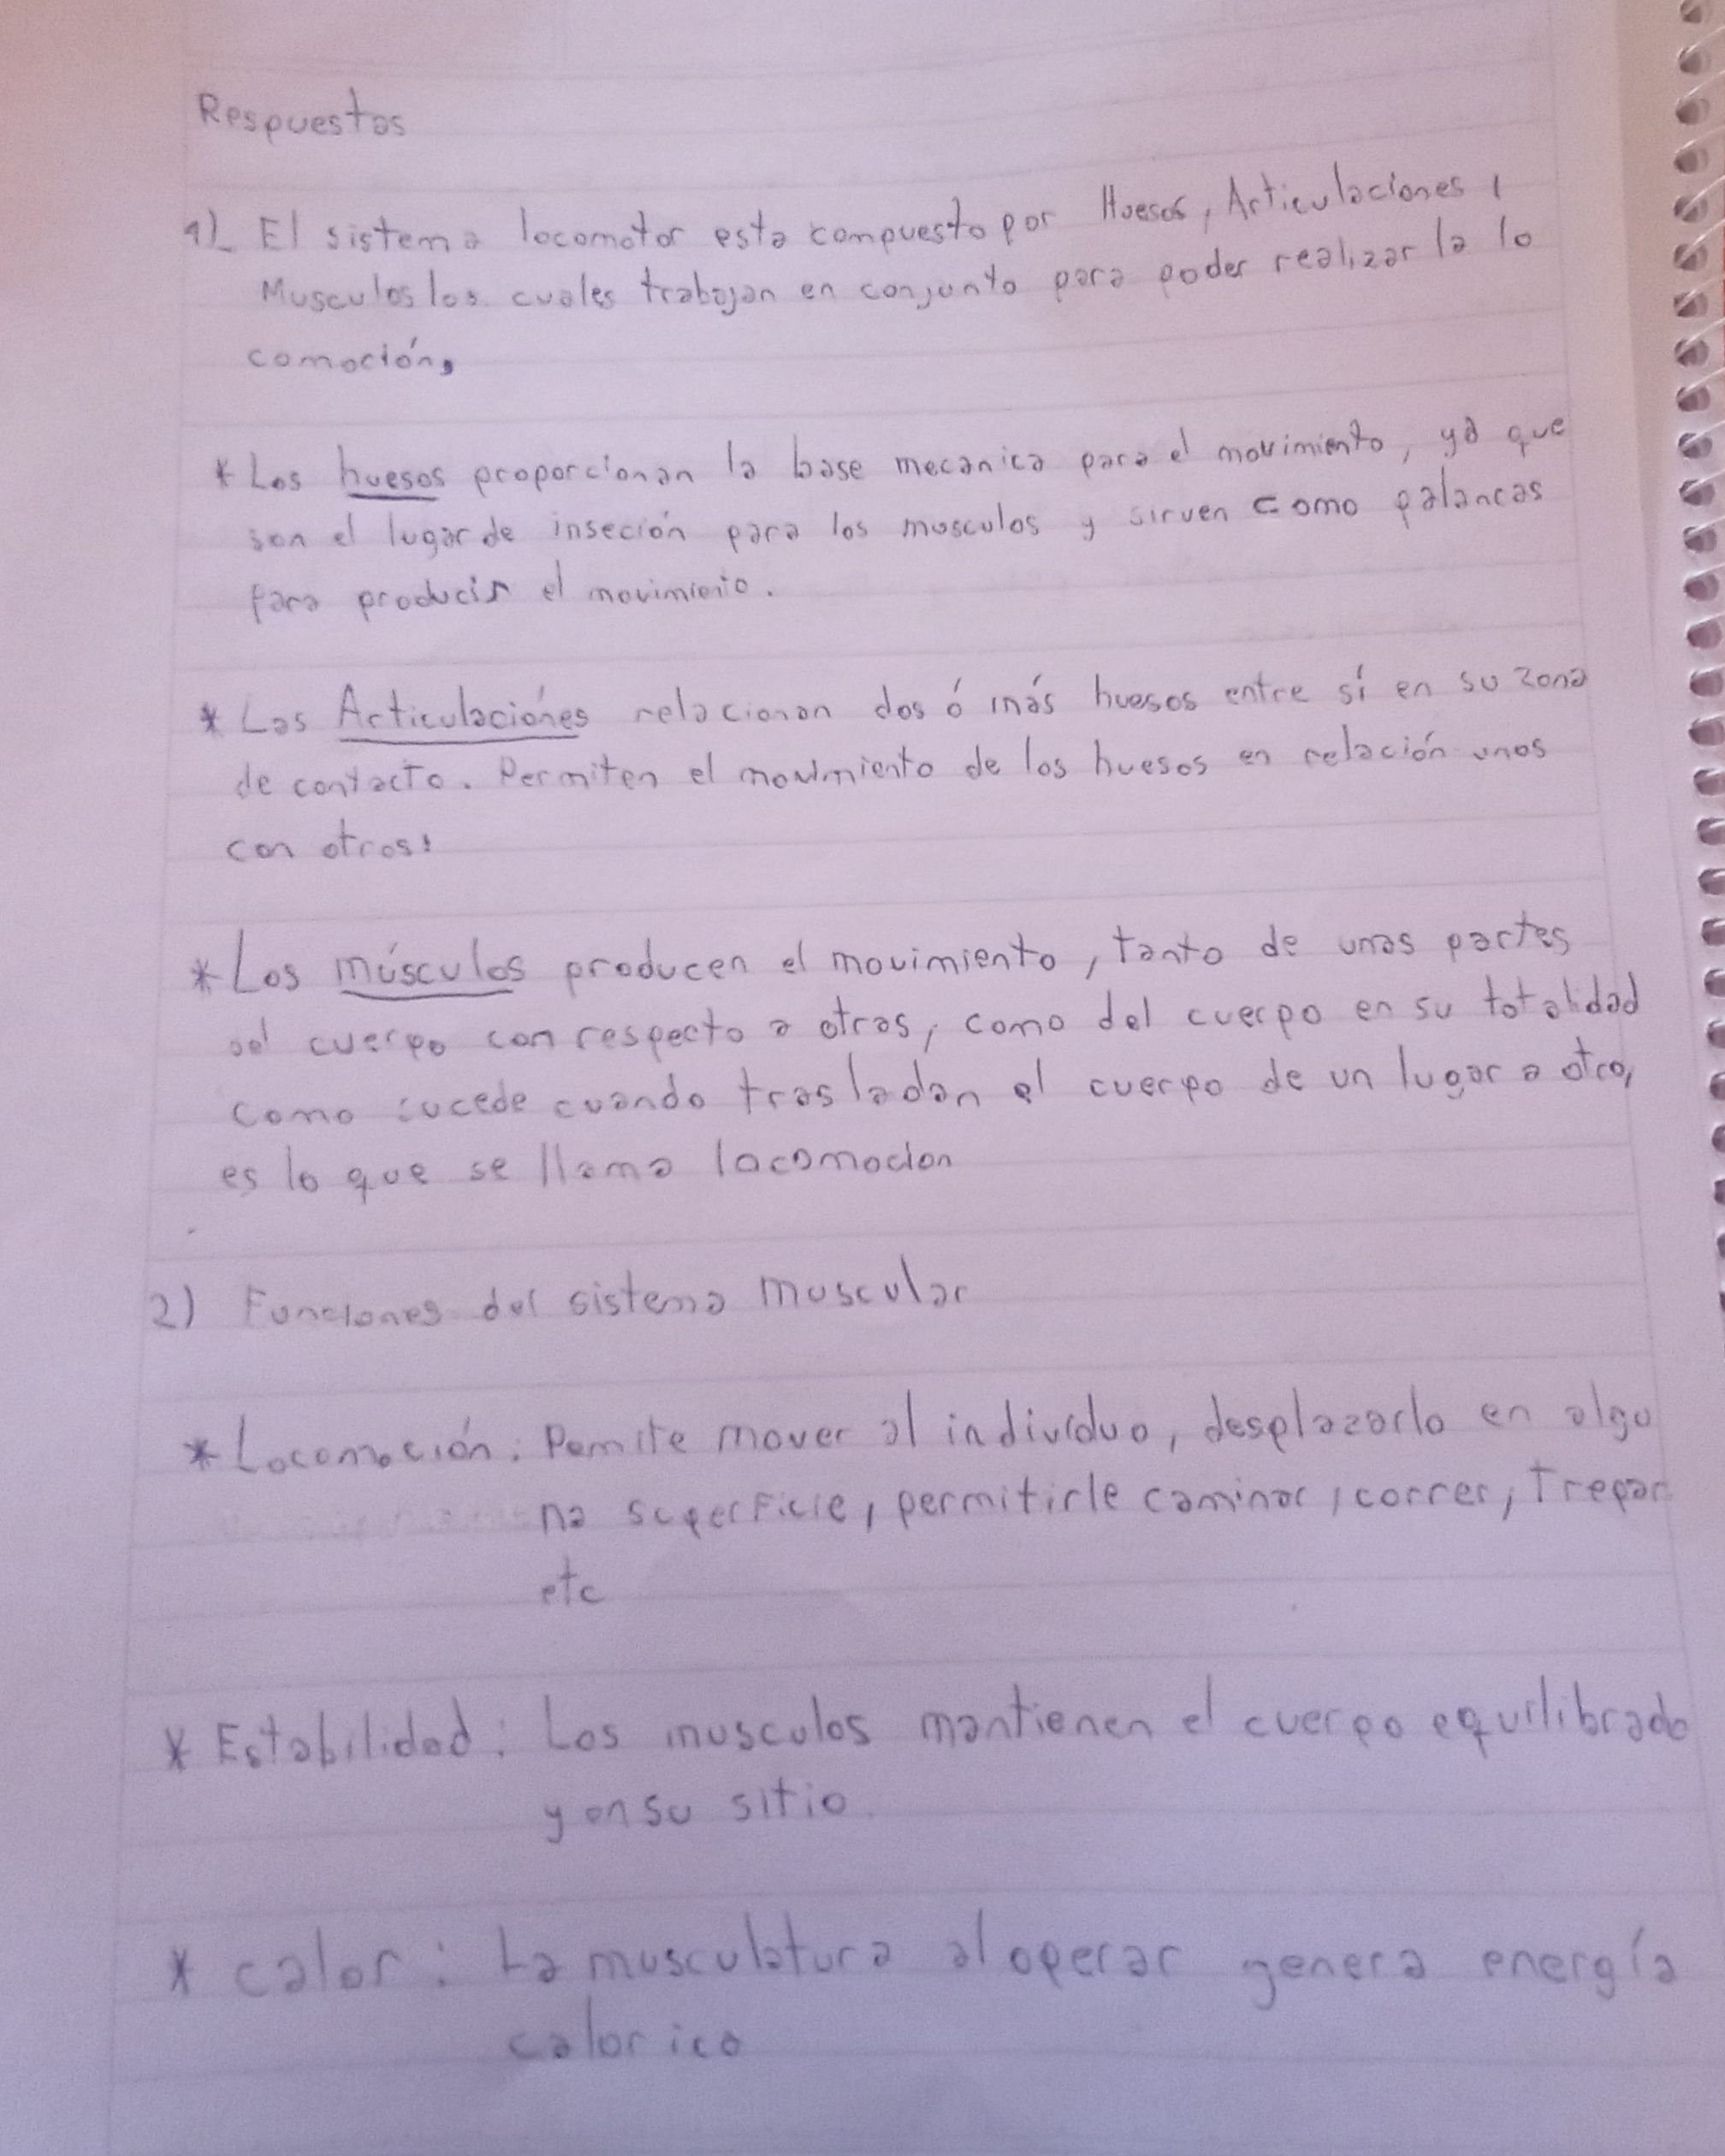 Respuestas
1)_ El sistema locomotor esta compuesto por Huesos, Articulaciones,
Musculos los cuales trabajan en conjunto para poder realizar la lo
comoción,
* Los huesos proporcionan la base mecanica para el movimiento, ya que
son el lugar de inseción para los musculos y sirven como palancas
para producir el movimiento.
* Las Articulaciónes relacionan dos ó más huesos entre sí en su zona
de contacto. Permiten el movimiento de los huesos en relación unos
con otros.
* Los músculos producen el movimiento, tanto de unas partes
del cuerpo con respecto a otras, como del cuerpo en su totalidad
como sucede cuando trasladan el cuerpo de un lugar a otro,
es lo que se llama locomocion
2) Funciones del sistema muscular
* Locomoción: Pemite mover al indivíduo, desplazarlo en algu
na superficie, permitirle caminar, correr, Trepar
etc
* Estabilidad: Los musculos mantienen el cuerpo equilibrado
y en su sitio.
* calor: La musculatura al operar genera energía
calorica